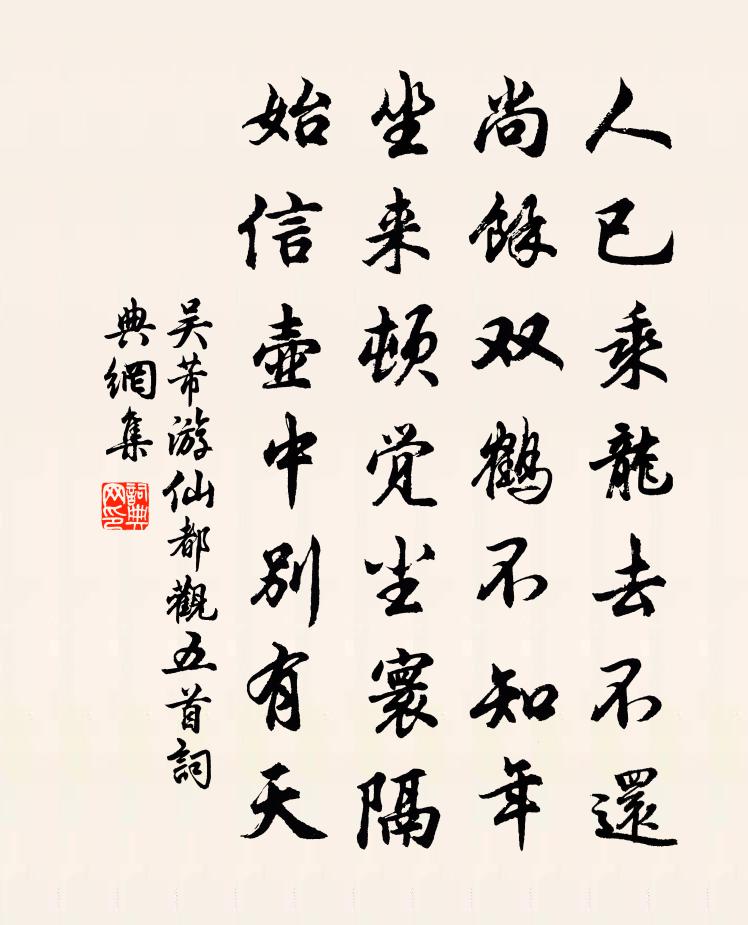 人已乘龍去不還
尚餘双鶴不知年
坐来顿觉尘寰隔
始信壺中别有天
吴芾游仙都觀五首詞
典網集
詞典网印